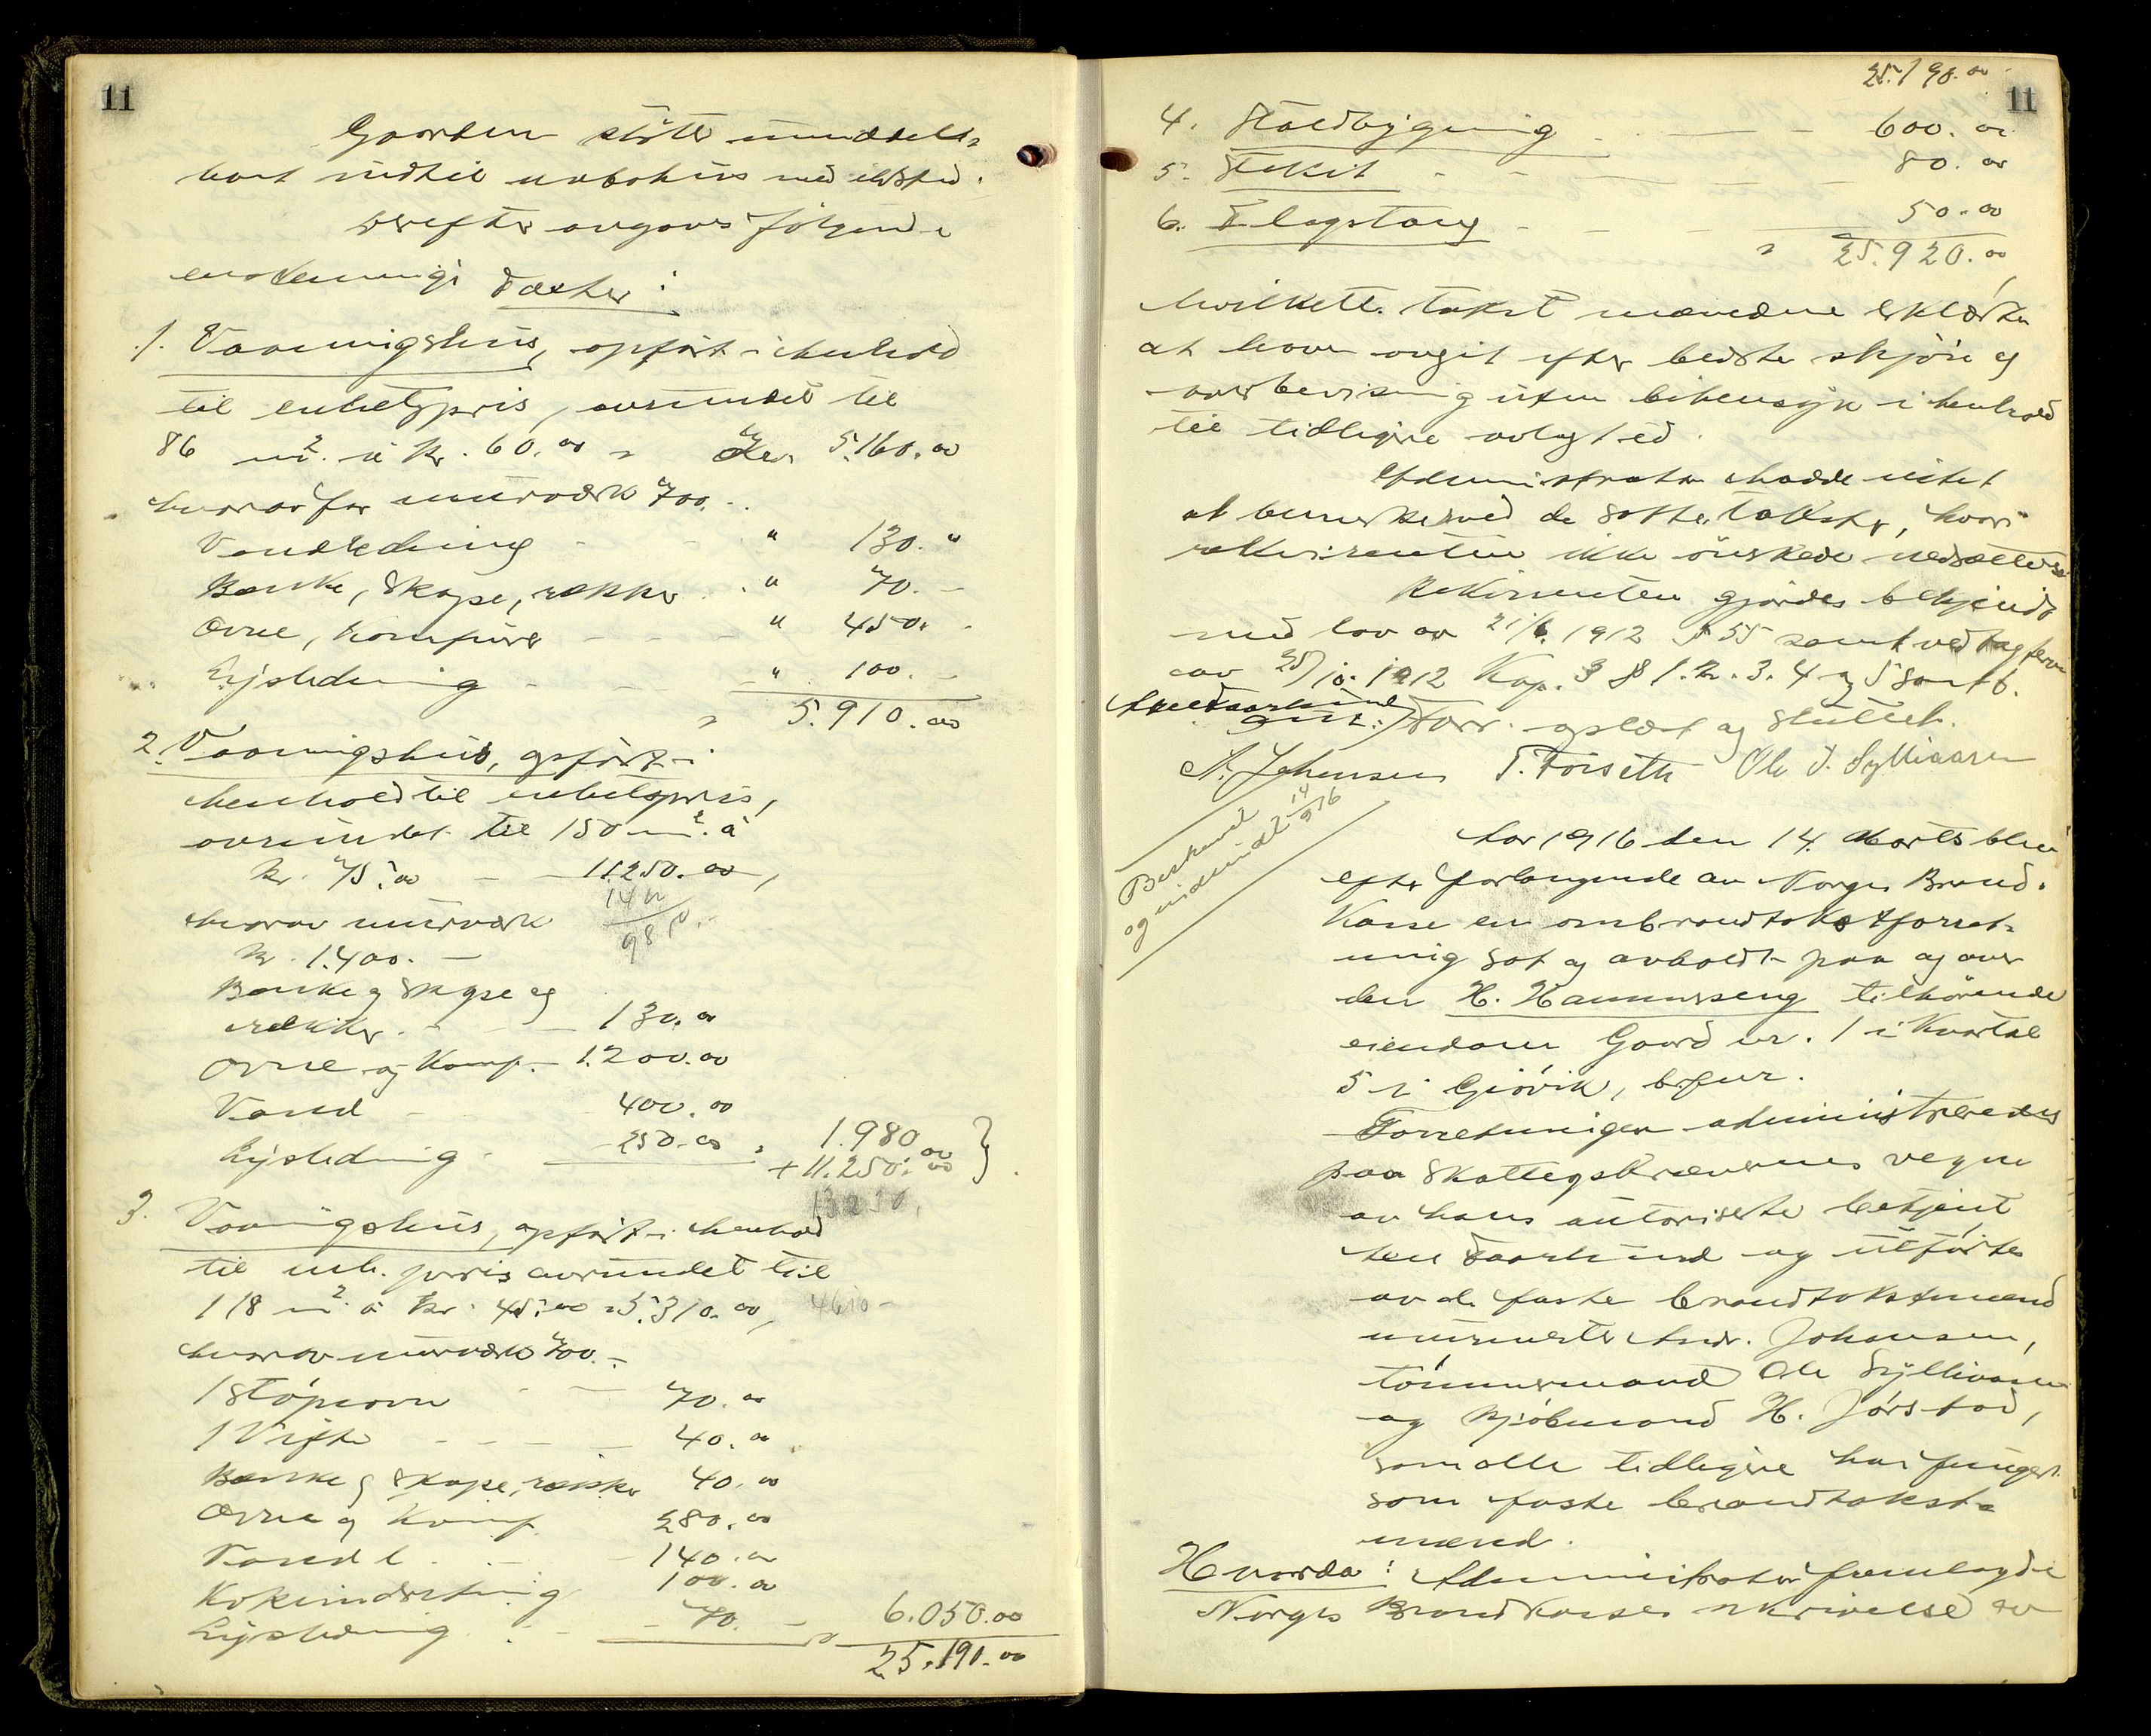 11
Gaarden støter umiddel-
bart indtil nabohus med ildsted.
Derefter avgaves følgende
enstemmige Takster:
1. Vaaningshus, opført i henhold
til enhetspris, avrundet til
86 m². á kr. 60.00 = Kr. 5.160.00
hvorav for murværk 700.-
Vandledning - - " 130. "
Bænke, Skape, rækker - " 70. -
Ovne, komfurer - - - " 450. -
Lysledning - - - " 100. -
= 5.910.00
2. Vaaningshus, opført i
henhold til enhetspris,
avrundet til 150 m². á
kr. 75.00 - - 11.250.00,
hvorav murværk
kr. 1.400. -
Bænke og Skape og
rækker - - - 130.00
Ovne og Komf. - 1.200.00
Vand - 400.00
Lysledning - 250.00 = 1.980.00
+ 11.250.00 }
13230,
3. Vaaningshus, opført i henhold
til enh. pris avrundet til
118 m². á kr. 45.00 = 5.310.00, 4610 -
hvorav murværk 700. -
1 Støpeovn - - 70.00
1 Vifte - - - - 40.00
Bænke og Skape, rækker 40.00
Ovne og Komf. 280.00
Vandl. - - 140.00
Kokeindretning 100.00
Lysledning - - 70. - = 6.050.00
25.190.00
11
25.190.00
4. Staldbygning - - - 600.00
5. Stakit - - - - 80.00
6. Flagstang - - - 50.00
= 25.920.00
hvilken takst mændene erklærte
at have avgit efter bedste skjøn og
overbevisning uten bihensyn i henhold
til tidligere avlagt ed.
Administrator hadde intet
at bemerke ved de satte takster, hvori
rekvirenten ikke ønskede nedsættelse
Rekvirenten gjordes bekjendt
med lov av 21/6. 1912 § 55 samt vedtægterne
av 25/10. 1912 Kap. 3 § 1. 2. 3. 4 og 5 samt 6.
Forr. oplæst og sluttet.
A. Johansen T. Forseth Ole J. Sylliaasen
Beskrevet
og innsendt 14/9 16
Aar 1916 den 14. Marts blev
efter forlangende av Norges Brand-
kasse en ombrandtakstforret-
ning sat og avholdt paa og over
den H. Hammerseng tilhørende
eiendom Gaard nr. 1 i Kvartal
5 i Gjøvik,
Forretningen administreredes
paa Skattegskrævernes vegne
av hans autoriserte betjent
Taarlund og utførtes
av de faste brandtakstmænd
murmester Andr. Johansen,
tømmermand Ole Sylliaasen
og kjøbmand H. Jørstad,
som alle tidligere har fungert
som faste brandtakst-
mænd.
Hvorda: Administrator fremlagde
Norges Brandkasses skrivelse av